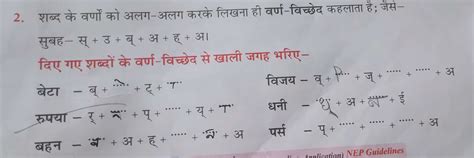 2. शब्द के वर्णों को अलग-अलग करके लिखना ही वर्ण-विच्छेद कहलाता है; जैसे–
सुबह– स् + उ + ब् + अ + ह् + अ।
दिए गए शब्दों के वर्ण-विच्छेद से खाली जगह भरिए–
बेटा – ब् + ..... + ट् + T
विजय – व् + P + ज् + ..... + ..... + अ
रुपया – र् + ..... + प् + ..... + य् + T
धनी – धू + अ + न + ई
बहन – ब + अ + ह् + ..... + न + अ
पर्स – प् + ..... + ..... + ..... + अ
NEP Guidelines